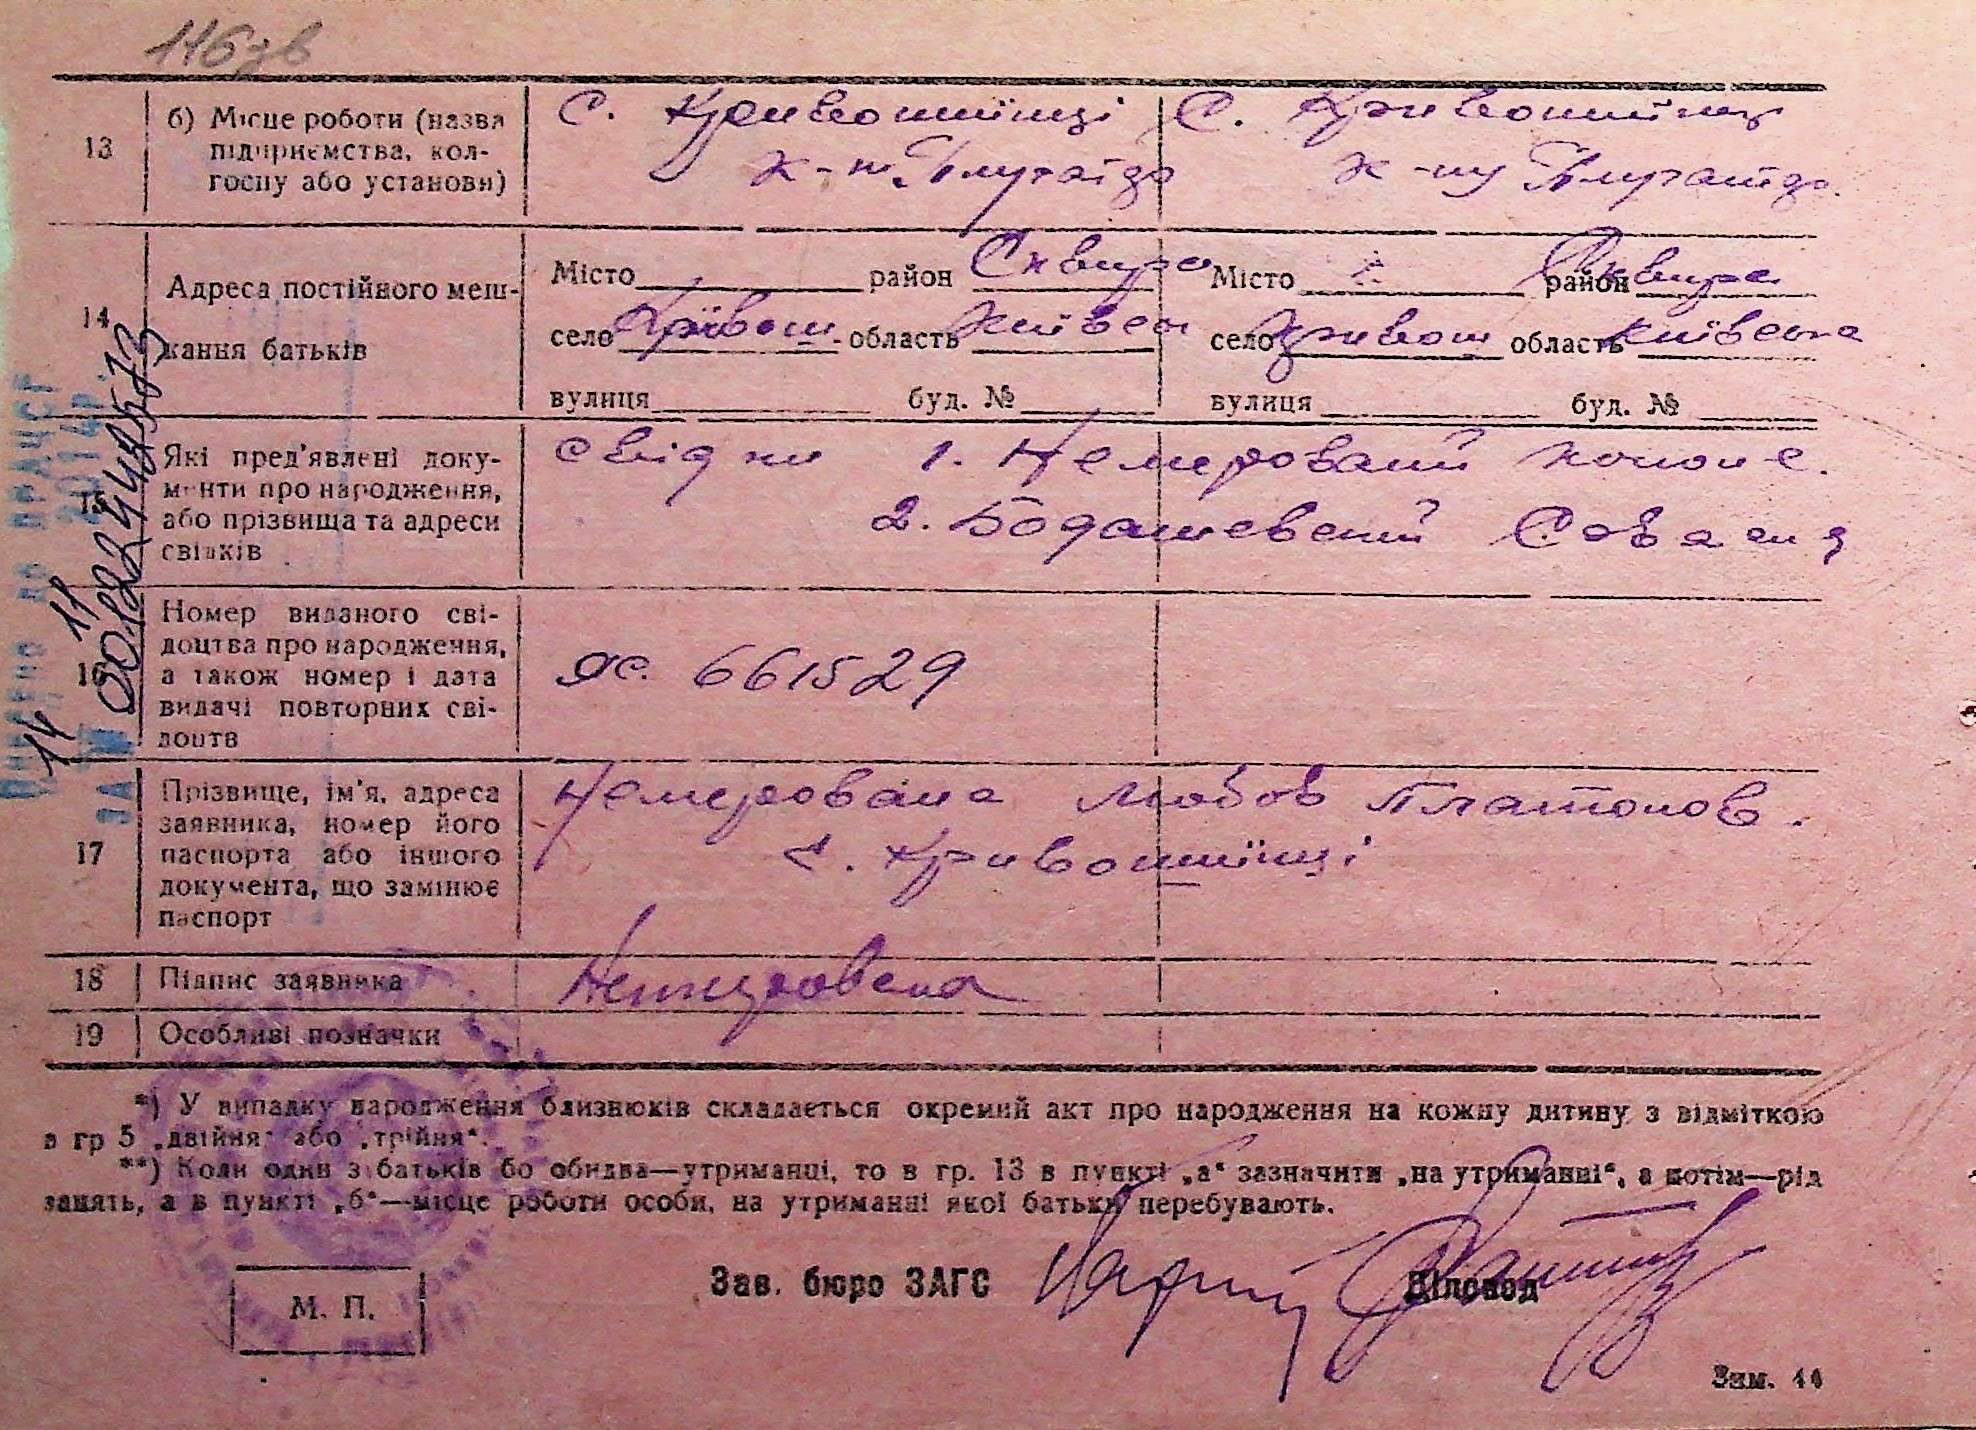 116 зв
13 б) Місце роботи (назва підприємства, колгоспу або установи)
с. Кривошиїнці
к-п
с. Кривошиїнці
к-пу
14 Адреса постійного мешкання батьків
Місто район Сквира
село Кривош. область Київськ
вулиця буд. №
Місто район Сквира
село Кривош область Київська
вулиця буд. №
15 Які пред'явлені документи про народження, або прізвища та адреси свідків
свідки 1. Немерований
2. Бодашевський
16 Номер виданого свідоцтва про народження, а також номер і дата видачі повторних свідоцтв
ЯС. 661529
17 Прізвище, ім'я, адреса заявника, номер його паспорта або іншого документа, що замінює паспорт
Немерована Любов Платонов.
с. Кривошиїнці
18 Підпис заявника
Немерована
19 Особливі позначки
*) У випадку народження близнюків складається окремий акт про народження на кожну дитину з відміткою
в гр 5 „двійня" або „трійня".
**) Коли один з батьків бо обидва—утриманці, то в гр. 13 в пункті „а" зазначити „на утриманні", а потім—рід
занять, а в пункті „б"—місце роботи особи, на утриманні якої батьки перебувають.
Зав. бюро ЗАГС
Діловод
М. П.
Зим. 44
14 11
00122448573